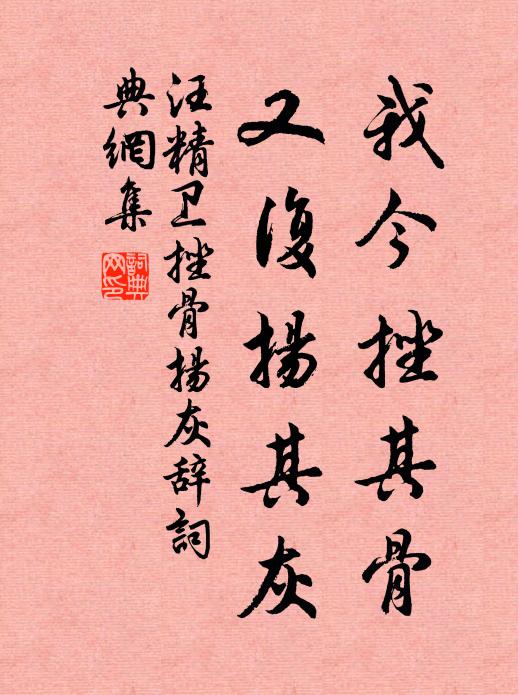 我今挫其骨
又復揚其灰
汪精卫挫骨揚灰辞詞
典網集
詞典網印